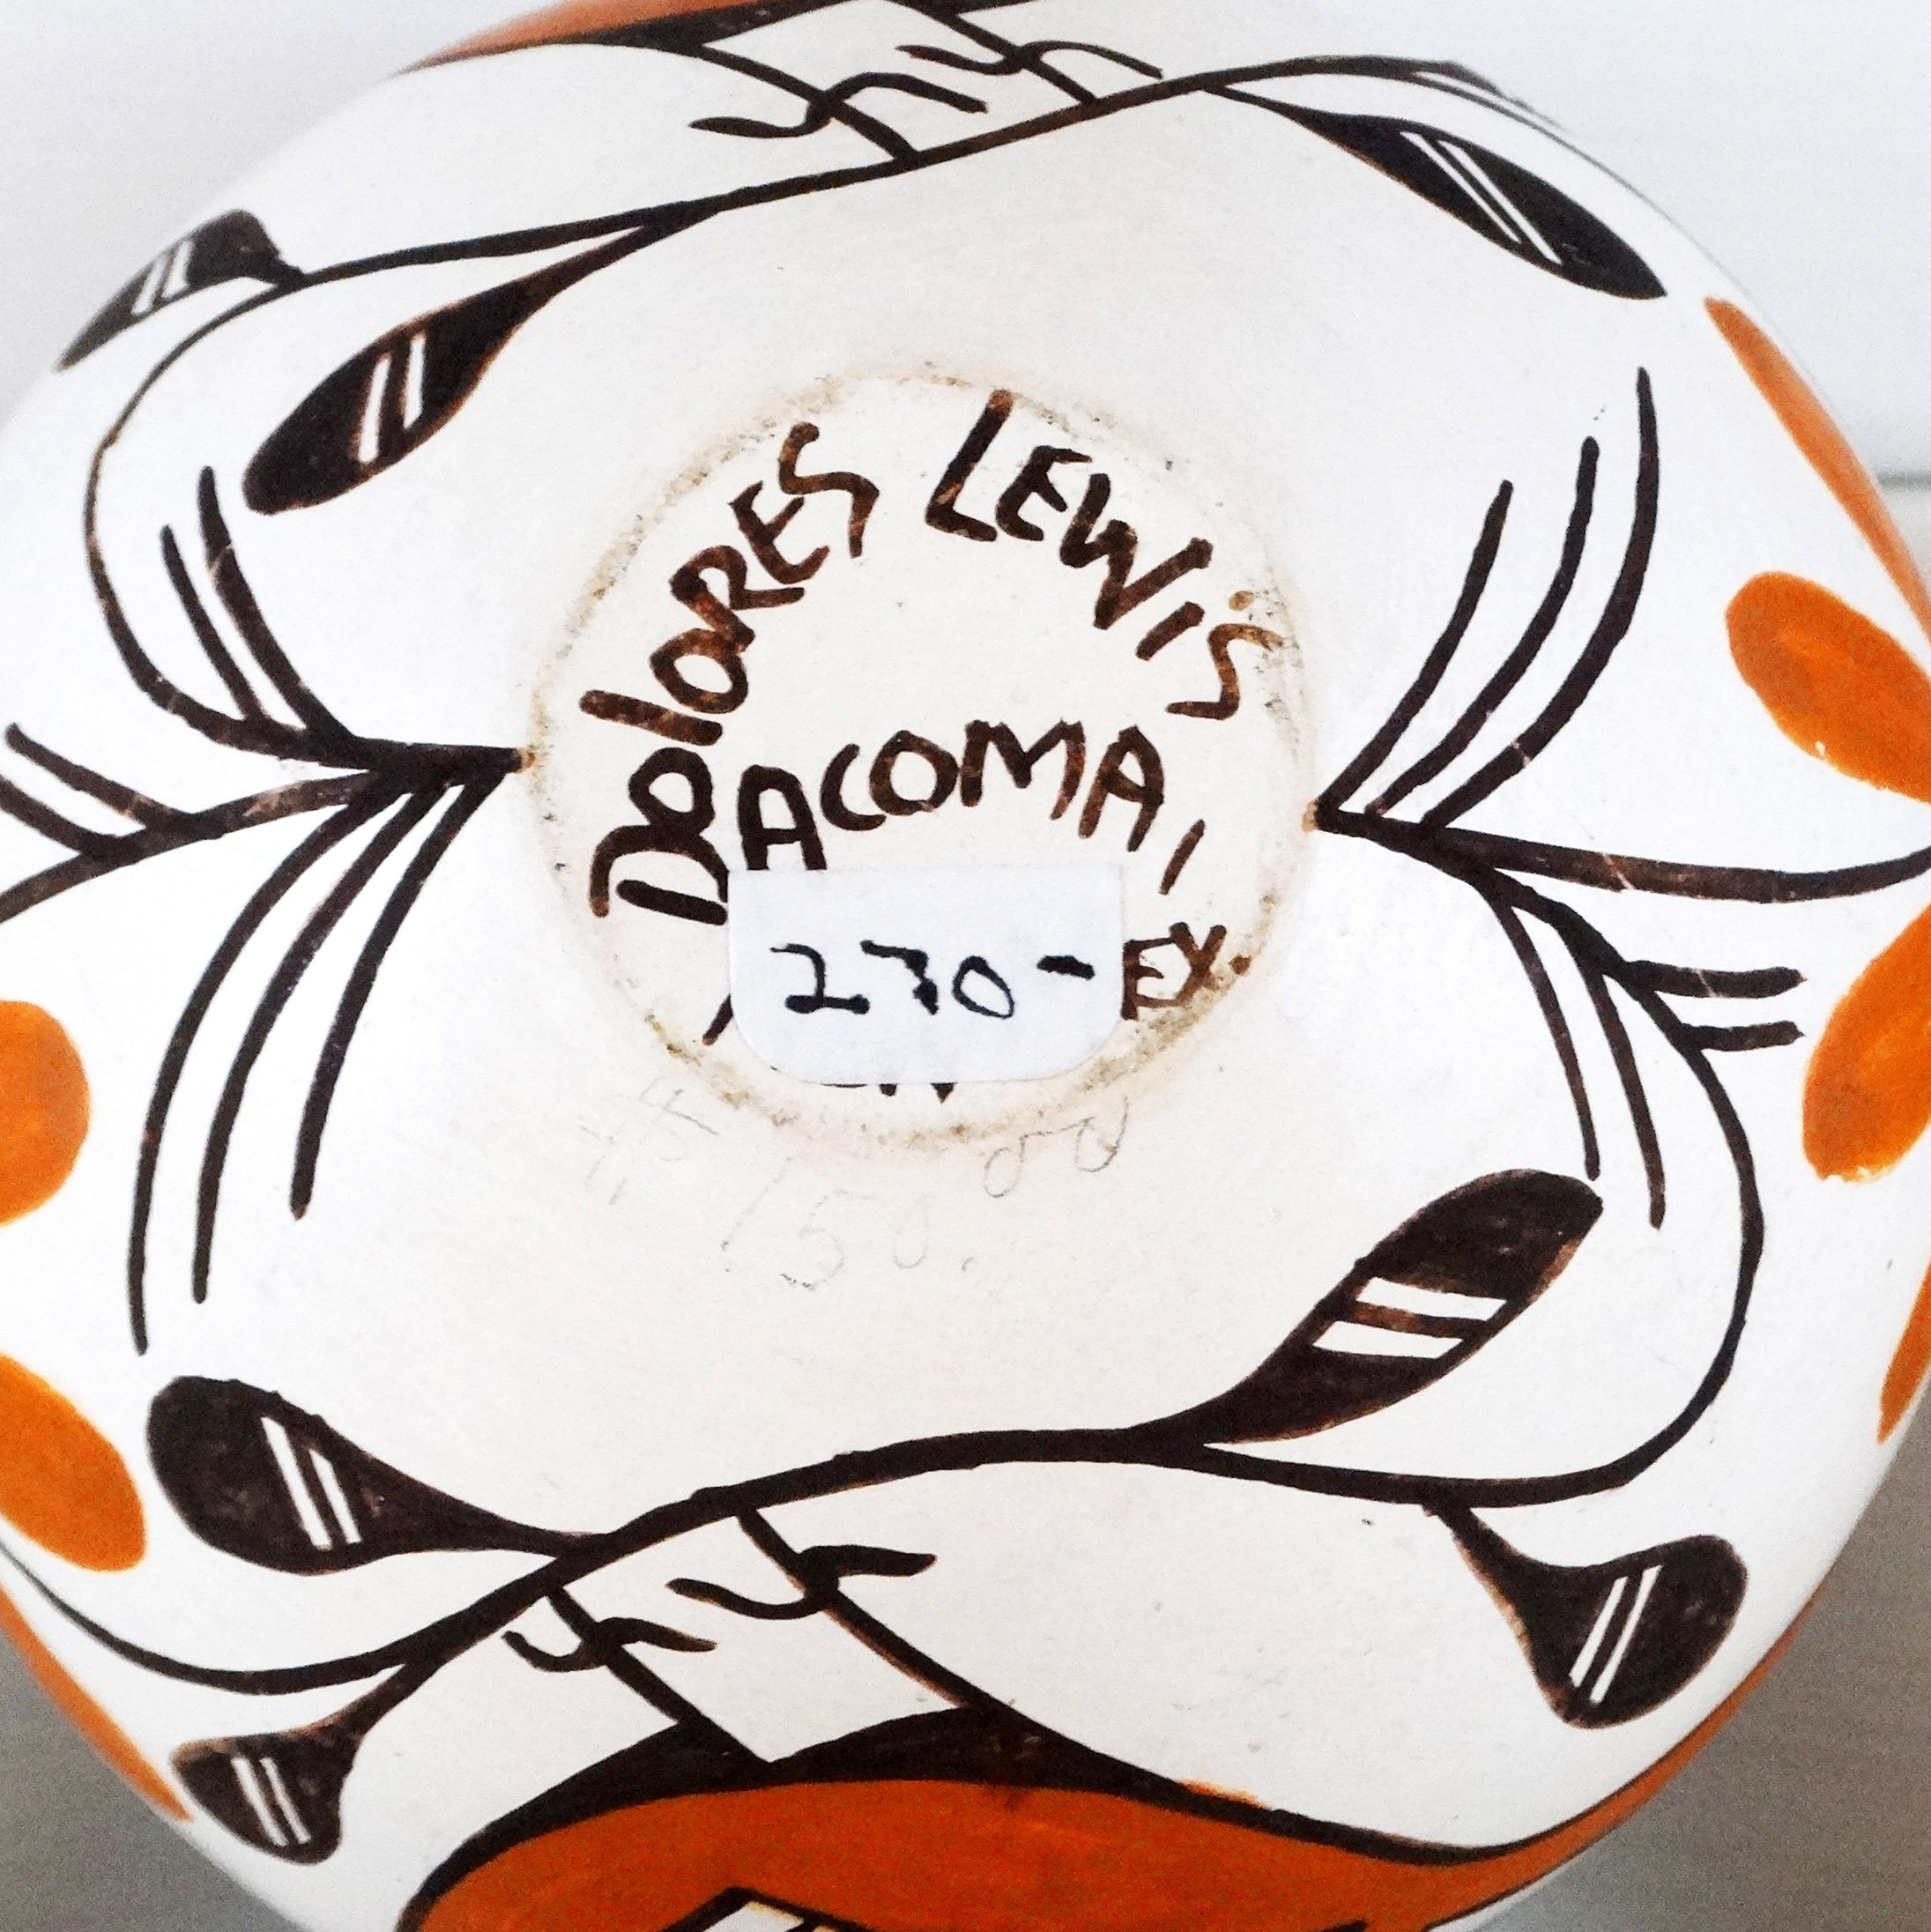 DolORES LEWiS
ACOMA,
EX.
270-
$150.00